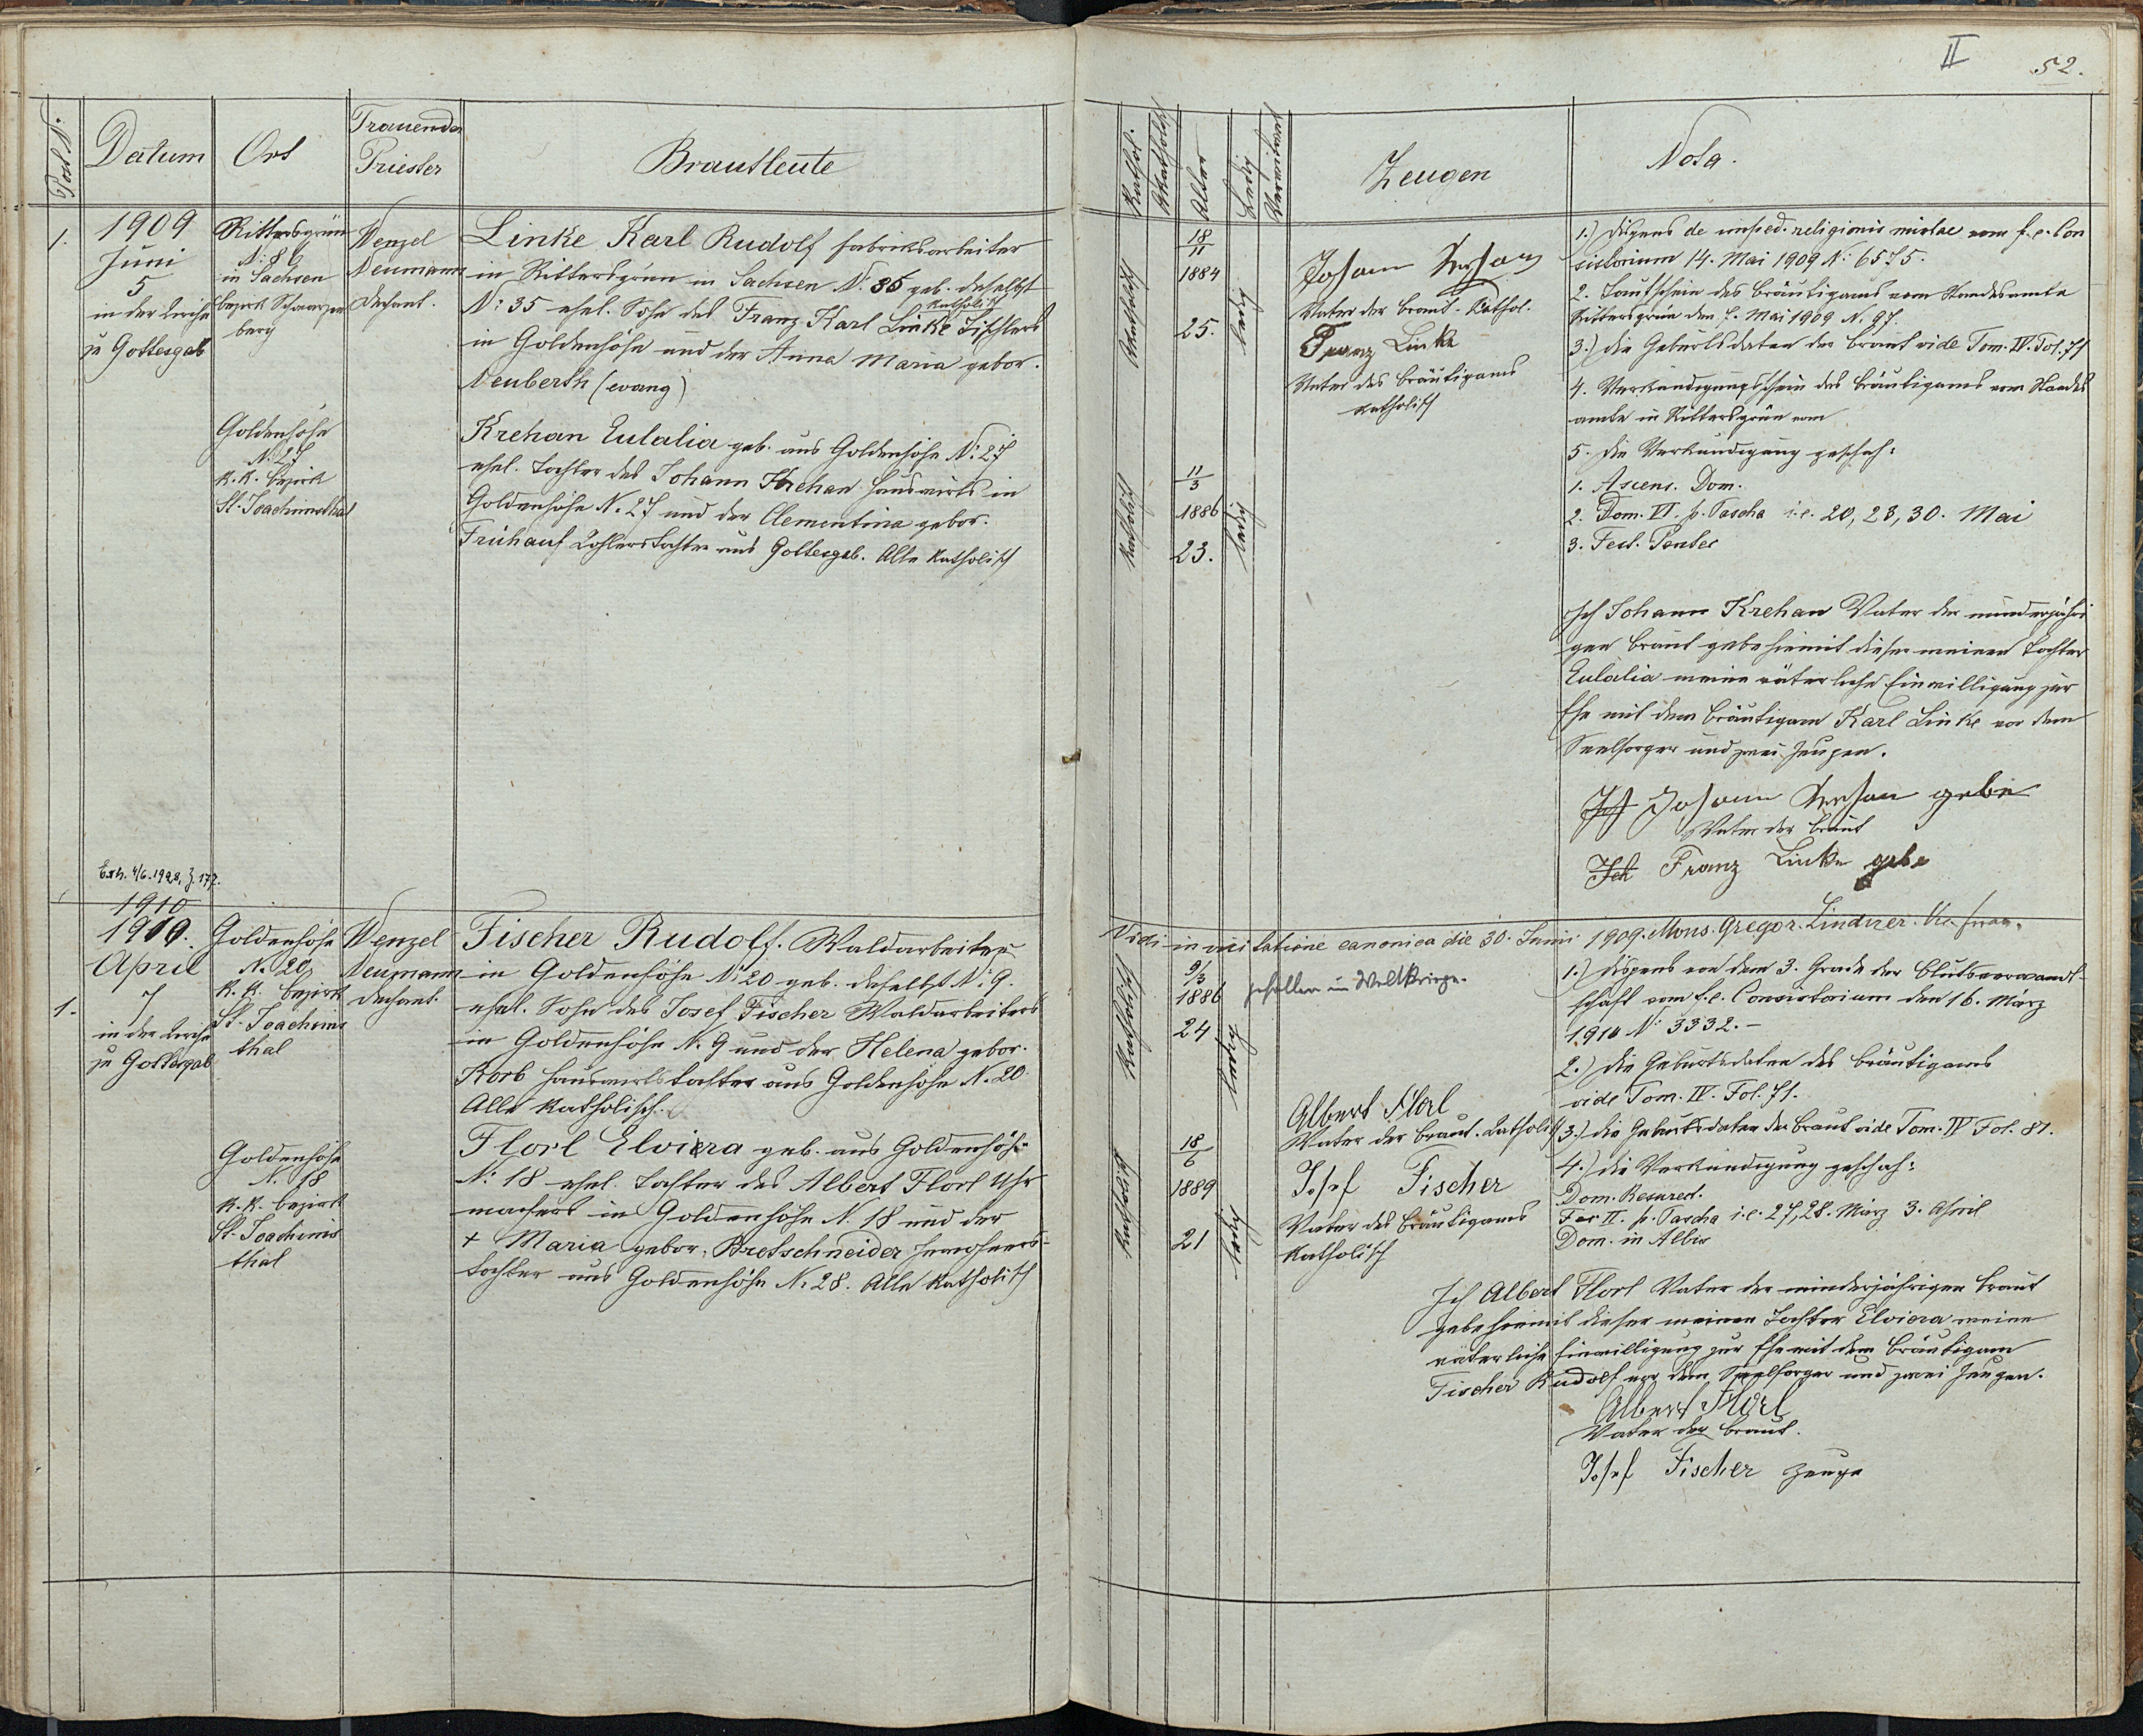 II 52.
Post N.
Datum
Ort
Trauender
Priester
Brautleute
1.
1909
Juni
5
in der Kirche
zu Gottesgab
Rittersgrün
N: 86
in Sachsen
bezirk Schwarzen
berg
Wenzel
Neumann
Dechant.
Linke Karl Rudolf fabriksarbeiter
in Rittersgrün in Sachsen N. 86 geb. daselbst
katholisch
N: 35 ehel. Sohn des Franz Karl Linke Tischlers
in Goldenhöhe und der Anna Maria gebor.
Neuberth (evang)
Goldenhöhe
N. 27
K.K. bezirk
St. Joachimsthal
Krehan Eulalia geb. aus Goldenhöhe N: 27
ehel. Tochter des Johann Krehan Hauswirts in
Goldenhöhe N. 27 und der Clementina gebor.
Frühauf Tochter aus Gottesgab. Alle Katholisch
Exh. 4/6. 1928, Z. 177.
1910
1910.
April
7
in der Kirche
zu Gottesgab
1.
Goldenhöhe
N. 20
K.K. bezirk
St. Joachims
thal
Wenzel
Neumann
Dechant.
Fischer Rudolf. Waldarbeiter
in Goldenhöhe N: 20 geb. daselbst N: 9.
ehel. Sohn des Josef Fischer Waldarbeiters
in Goldenhöhe N. 9 und der Helena gebor.
Korb Hauswirtstochter aus Goldenhöhe N. 20.
Alle Katholisch.
Goldenhöhe
N. 18
K.K. bezirk
St. Joachims
thal
Florl Elviera geb. aus Goldenhöhe
N: 18 ehel. Tochter des Albert Florl Uhr
machers in Goldenhöhe N. 18 und der
+ Maria gebor. Bretschneider Inwohners-
tochter aus Goldenhöhe N. 28. Alle Katholisch
Kathol.
Akatholisch
Alter
Ledig
Verwitwet
Zeugen
Nota.
Akatholisch
18
11
1884
25.
ledig
Johann Krehan
Vater der Braut. Kathol.
Franz Linke
Vater des Bräutigams
katholisch
Katholisch
11
3
1886
23.
ledig
1.) Dispens de imped. religionis mixtae vom f.e. Con
sistorium 14. Mai 1909 N: 6575.
2. Taufschein des Bräutigams vom Standesamte
Rittersgrün den Mai 1909 N. 97.
3.) Die Geburtsdaten der Braut vide Tom. IV. Fol. 71
4. Verkündigungsschein des Bräutigams vom Standes
amte in Rittersgrün vom
5. Die Verkündigung geschah:
1. Ascens. Dom.
2. Dom. VI. p. Pascha i.e. 20, 23, 30. Mai
3. Fest. Pentec
Ich Johann Krehan Vater der minderjähri
gen Braut gebe hiemit dieser meiner Tochter
Eulalia meine väterliche Einwilligung zur
Ehe mit dem Bräutigam Karl Linke vor dem
Seelsorger und zwei Zeugen.
Ich Johann Krehan gebe
Vater der Braut
Ich Franz Linke gebe
Vidi in visitatione canonica die 30. Junii 1909. Mons. Gregor. Lindner.
Katholisch
9/3
1886
24
ledig
gefallen im Weltkriege.
Katholisch
18
6
1889
21
ledig
Albert Florl
Vater der Braut. Katholisch
Josef Fischer
Vater des Bräutigams
Katholisch
1.) Dispens von dem 3. Grade der Blutsverwandt-
schaft vom f.e. Consistorium den 16. März
1910 N: 3332.-
2.) Die Geburtsdaten des Bräutigams
vide Tom. IV. Fol. 71.
3.) Die Geburtsdaten der Braut vide Tom. IV Fol. 81.
4.) Die Verkündigung geschah:
Dom. Resurect.
Fer II. p. Pascha i.e. 27, 28. März 3. April
Dom. in Albis
Ich Albert Florl Vater der minderjährigen Braut
gebe hiemit dieser meiner Tochter Elviera meine
väterliche Einwilligung zur Ehe mit dem Bräutigam
Fischer Rudolf vor dem Seelsorger und zwei Zeugen.
Albert Florl
Vater der Braut.
Josef Fischer Zeuge